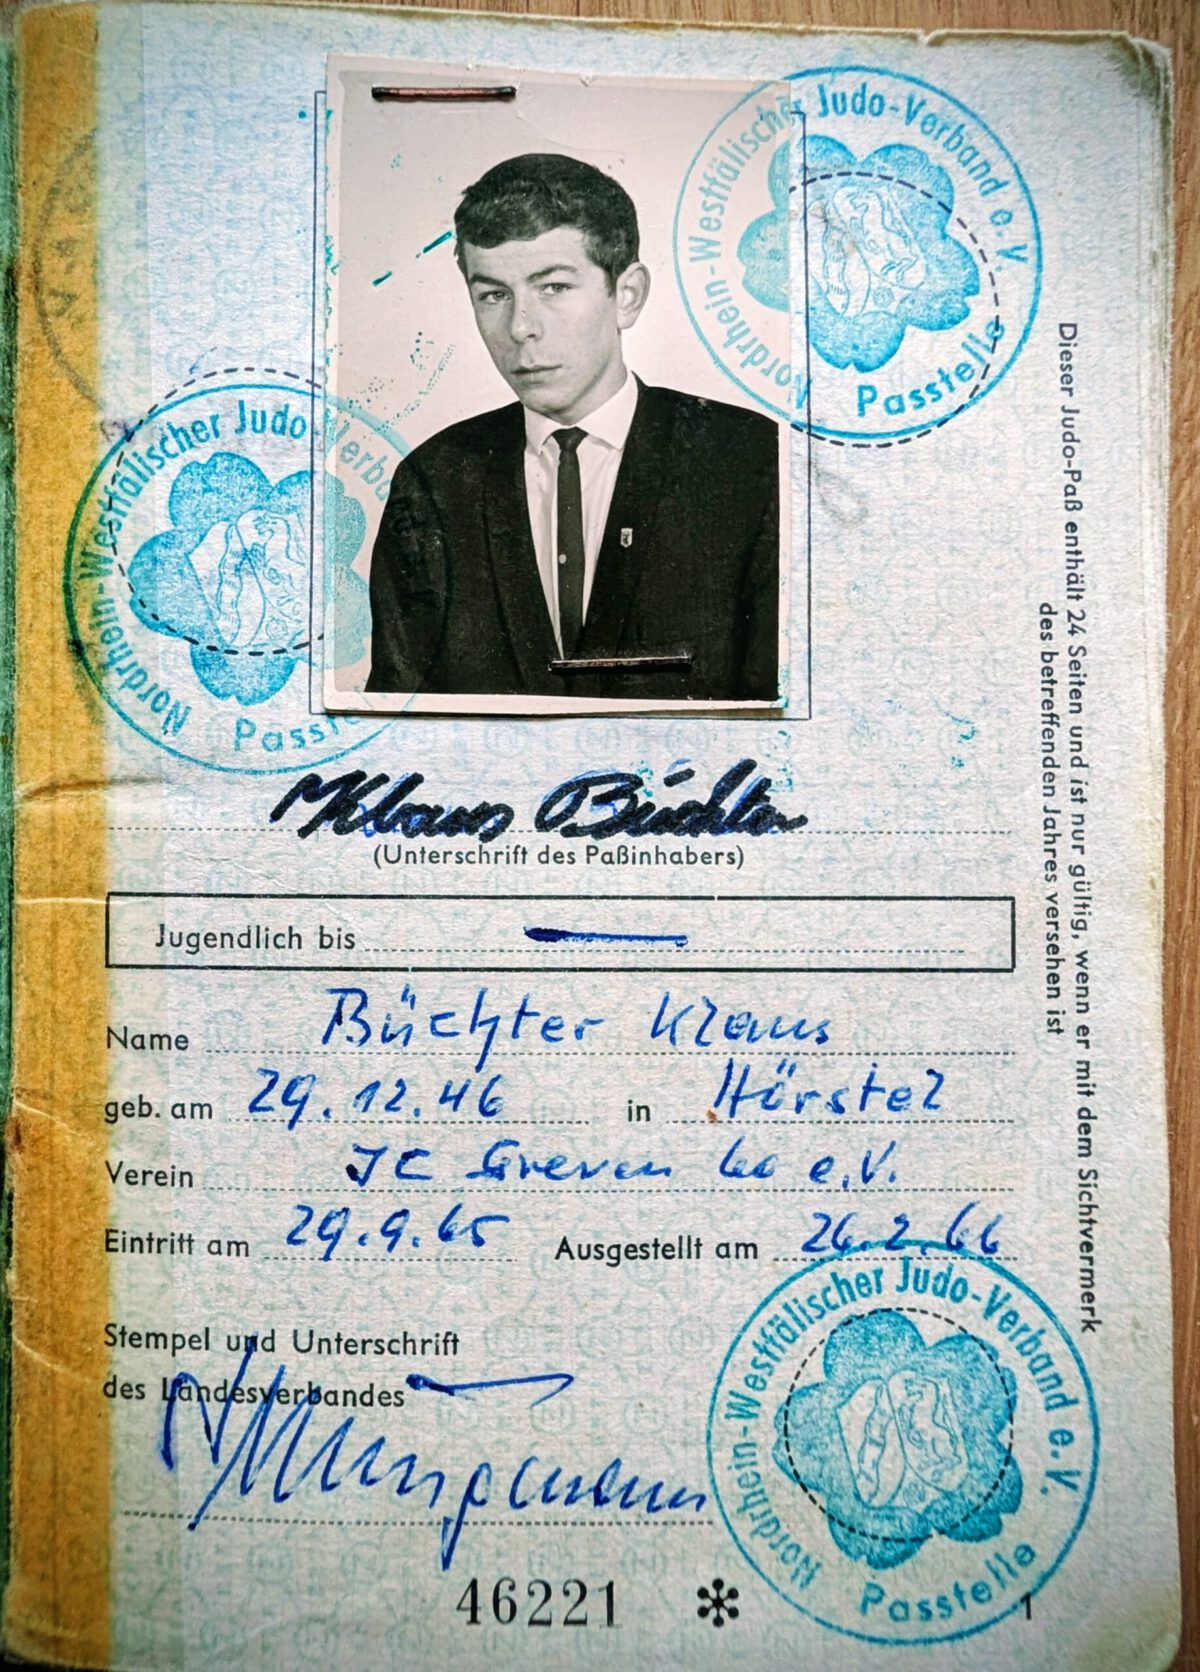 Nordrhein-Westfälischer Judo-Verband e.V.
Passtelle
Nordrhein-Westfälischer Judo Verband
Passtelle
Klaus Büchter
(Unterschrift des Paßinhabers)
Jugendlich bis
Name Büchter Klaus
geb. am 29.12.46 in Hörstel
Verein JC Greven 60 e.V.
Eintritt am 29.9.65 Ausgestellt am 26.2.66
Stempel und Unterschrift
des Landesverbandes
Nordrhein-Westfälischer Judo-Verband e.V.
Passtelle
46221 * 1
Dieser Judo-Paß enthält 24 Seiten und ist nur gültig, wenn er mit dem Sichtvermerk
des betreffenden Jahres versehen ist